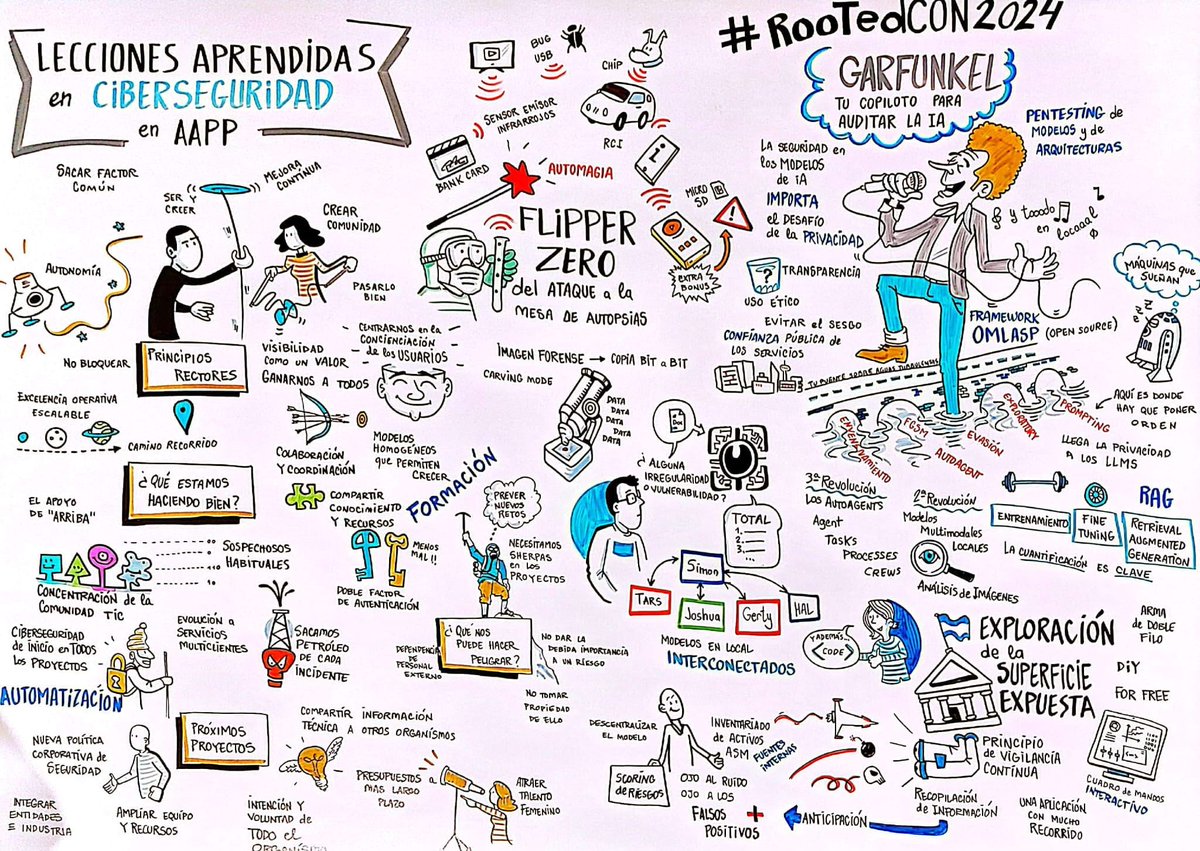 LECCIONES APRENDIDAS
en CIBERSEGURIDAD
en AAPP
SACAR FACTOR
COMÚN
SER Y
CREER
MEJORA
CONTINUA
CREAR
COMUNIDAD
AUTONOMÍA
PASARLO
BIEN
NO BLOQUEAR
PRINCIPIOS
RECTORES
VISIBILIDAD
COMO UN VALOR
GANARNOS A TODOS
CENTRARNOS en la
CONCIENCIACIÓN
de los USUARIOS
EXCELENCIA OPERATIVA
ESCALABLE
CAMINO RECORRIDO
COLABORACIÓN
Y COORDINACIÓN
MODELOS
HOMOGÉNEOS
QUE PERMITEN
CRECER
¿QUÉ ESTAMOS
HACIENDO BIEN?
EL APOYO
DE "ARRIBA"
COMPARTIR
CONOCIMIENTO
Y RECURSOS
FORMACIÓN
PREVER
NUEVOS
RETOS
SOSPECHOSOS
HABITUALES
CONCENTRACIÓN de la
COMUNIDAD TIC
MENOS
MAL!!
DOBLE FACTOR
DE AUTENTICACIÓN
NECESITAMOS
SHERPAS
EN LOS
PROYECTOS
CIBERSEGURIDAD
DE INICIO en TODOS
LOS PROYECTOS
EVOLUCIÓN A
SERVICIOS
MULTICLIENTES
SACAMOS
PETRÓLEO
DE CADA
INCIDENTE
¿QUÉ NOS
PUEDE HACER
PELIGRAR?
DEPENDENCIA
DE
PERSONAL
EXTERNO
NO DAR LA
DEBIDA IMPORTANCIA
A UN RIESGO
NO TOMAR
PROPIEDAD
DE ELLO
AUTOMATIZACIÓN
PRÓXIMOS
PROYECTOS
NUEVA POLÍTICA
CORPORATIVA DE
SEGURIDAD
COMPARTIR INFORMACIÓN
TÉCNICA A OTROS ORGANISMOS
PRESUPUESTOS A
MAS LARGO
PLAZO
ATRAER
TALENTO
FEMENINO
INTEGRAR
ENTIDADES
E INDUSTRIA
AMPLIAR EQUIPO
Y RECURSOS
INTENCIÓN Y
VOLUNTAD DE
TODO el
ORGANISMO
BUG
USB
CHIP
SENSOR EMISOR
INFRARROJOS
RCI
BANK CARD
AUTOMAGIA
MICRO
SD
FLIPPER
ZERO
del ATAQUE a la
MESA DE AUTOPSIAS
EXTRA
BONUS
IMAGEN FORENSE → COPIA BIT A BIT
CARVING MODE
DATA
DATA
DATA
DATA
DATA
DOC
¿ALGUNA
IRREGULARIDAD
O VULNERABILIDAD?
TOTAL
1.
2.
3.
...
Simon
Tars
Joshua
Gerty
HAL
MODELOS EN LOCAL
INTERCONECTADOS
#RooTedCON2024
GARFUNKEL
TU COPILOTO PARA
AUDITAR LA IA
PENTESTING de
MODELOS y de
ARQUITECTURAS
LA SEGURIDAD en
los MODELOS
de IA
IMPORTA
el DESAFÍO
de la PRIVACIDAD
Y toooodo
en
locaaal
TRANSPARENCIA
USO ÉTICO
EVITAR el SESGO
CONFIANZA PÚBLICA DE
LOS SERVICIOS
MÁQUINAS QUE
SUEÑAN
FRAMEWORK
OMLASP (OPEN SOURCE)
TU PUENTE SOBRE AGUAS TURBULENTAS
ENVENENAMIENTO
FGSM
AUTOAGENT
EVASIÓN
EXPLORATORY
PROMPTING
AQUÍ ES DONDE
HAY QUE PONER
ORDEN
LLEGA LA PRIVACIDAD
A LOS LLMS
3ª REVOLUCIÓN
LOS AUTOAGENTS
Agent
TASKS
PROCESSES
CREWS
2ª REVOLUCIÓN
Modelos
Multimodales
LOCALES
ANÁLISIS DE IMÁGENES
ENTRENAMIENTO
FINE
TUNING
RAG
RETRIEVAL
AUGMENTED
GENERATION
LA CUANTIFICACIÓN ES CLAVE
Y ADEMÁS
<CODE>
EXPLORACIÓN
de la
SUPERFICIE
EXPUESTA
ARMA
DE DOBLE
FILO
DiY
FOR FREE
DESCENTRALIZAR
EL MODELO
INVENTARIADO
DE ACTIVOS
ASM
FUENTES
INTERNAS
SCORING
de RIESGOS
OJO AL RUIDO
OJO A LOS
FALSOS +
POSITIVOS
ANTICIPACIÓN
PRINCIPIO
DE VIGILANCIA
CONTÍNUA
RECOPILACIÓN
DE INFORMACIÓN
CUADRO DE MANDOS
INTERACTIVO
UNA APLICACIÓN
CON MUCHO
RECORRIDO